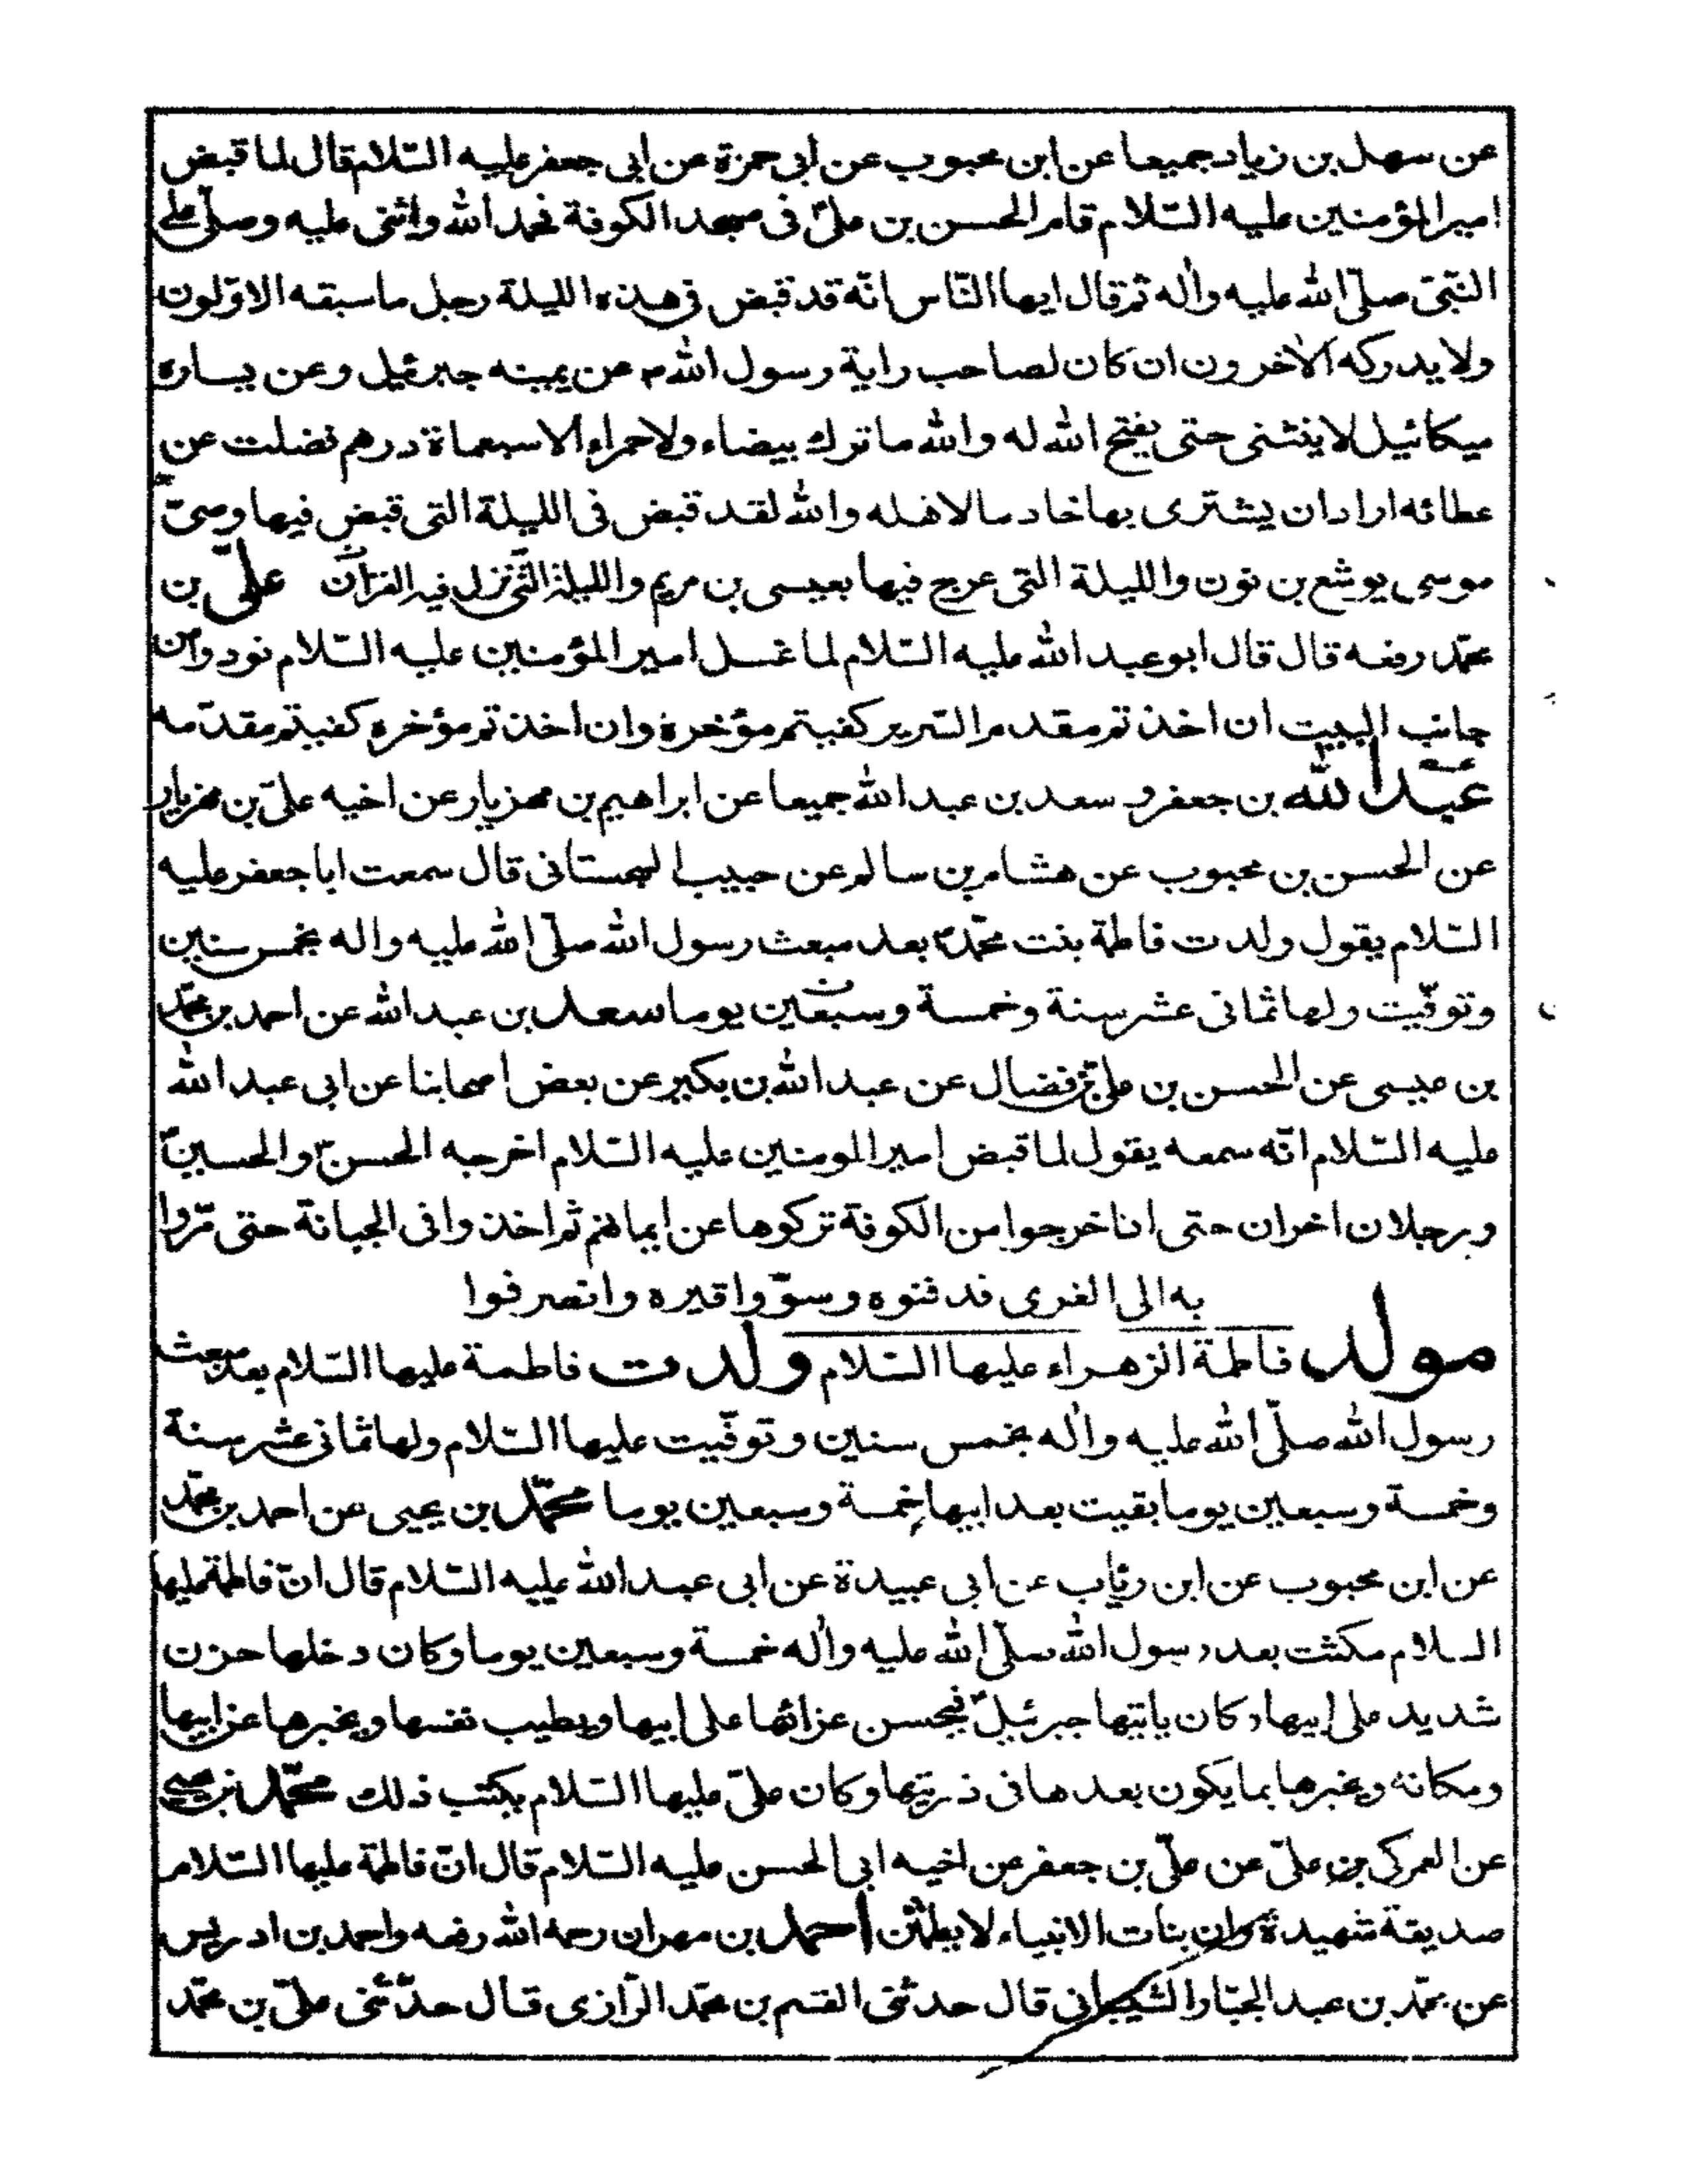 عن سهل بن زياد جميعا عن ابن محبوب عن ابى حمزة عن ابى جعفر عليه السّلام قال لما قبض
امير المؤمنين عليه السّلام قام الحسن بن علىّ فى مسجد الكوفة فحمد الله واثنى عليه وصلّى على
النّبىّ صلّى الله عليه واٰله ثم قال ايها النّاس انّه قد قبض فى هذه الليلة رجل ما سبقه الاوّلون
ولا يدركه الاٰخرون ان كان لصاحب راية رسول الله ص عن يمينه جبرئيل وعن يساره
ميكائيل لا ينثنى حتى يفتح الله له والله ما ترك بيضاء ولا حمراء الا سبعماة درهم فضلت عن
عطائه اراد ان يشترى بها خادما لاهله والله لقد قبض فى الليلة التى قبض فيها وصىّ
موسى يوشع بن نون والليلة التى عرج فيها بعيسى بن مريم والليلة التى نزل فيه القراٰن علىّ بن
محمّد رفعه قال قال ابو عبد الله عليه السّلام لما غسل امير المؤمنين عليه السّلام نودوا من
جانب البيت ان اخذتم مقدم السّرير كفيتم مؤخره وان اخذتم مؤخره كفيتم مقدّمه
عبد الله بن جعفر و سعد بن عبد الله جميعا عن ابراهيم بن مهزيار عن اخيه علىّ بن مهزيار
عن الحسن بن محبوب عن هشام بن سالم عن حبيب السجستانى قال سمعت ابا جعفر عليه
السّلام يقول ولدت فاطمة بنت محمّد بعد مبعث رسول الله صلّى الله عليه واله بخمس سنين
وتوفّيت ولها ثمانى عشر سنة وخمسة وسبعين يوما سعد بن عبد الله عن احمد بن محمّد
بن عيسى عن الحسن بن علىّ بن فضال عن عبد الله بن بكير عن بعض اصحابنا عن ابى عبد الله
عليه السّلام انّه سمعه يقول لما قبض امير المومنين عليه السّلام اخرجه الحسن والحسين
ورجلان اخران حتى اذا خرجوا من الكوفة تركوها عن ايمانهم ثم اخذوا فى الجبانة حتى مرّوا
به الى الغرى فدفنوه وسوّوا قبره وانصرفوا
مولد فاطمة الزهراء عليها السّلام ولدت فاطمة عليها السّلام بعد مبعث
رسول الله صلّى الله عليه واٰله بخمس سنين وتوفّيت عليها السّلام ولها ثمانى عشر سنة
وخمسة وسبعين يوما بقيت بعد ابيها خمسة وسبعين يوما محمّد بن يحيى عن احمد بن محمّد
عن ابن محبوب عن ابن رئاب عن ابى عبيدة عن ابى عبد الله عليه السّلام قال انّ فاطمة عليها
السلام مكثت بعد رسول الله صلّى الله عليه واٰله خمسة وسبعين يوما وكان دخلها حزن
شديد على ابيها وكان ياتيها جبرئيل فيحسن عزائها على ابيها ويطيب نفسها ويخبرها عن ابيها
ومكانه ويخبرها بما يكون بعدها فى ذريتها وكان علىّ عليها السّلام يكتب ذلك محمّد بن يحيى
عن العمركى بن علىّ عن علىّ بن جعفر عن اخيه ابى الحسن عليه السّلام قال انّ فاطمة عليها السّلام
صديقة شهيدة وان بنات الانبياء لا يطمثن احمد بن مهران رحمه الله رفعه واحمد بن ادريس
عن محمّد بن عبد الجبّار الشيبانى قال حدثنى القسم بن محمّد الرّازى قال حدّثنى علىّ بن محمّد